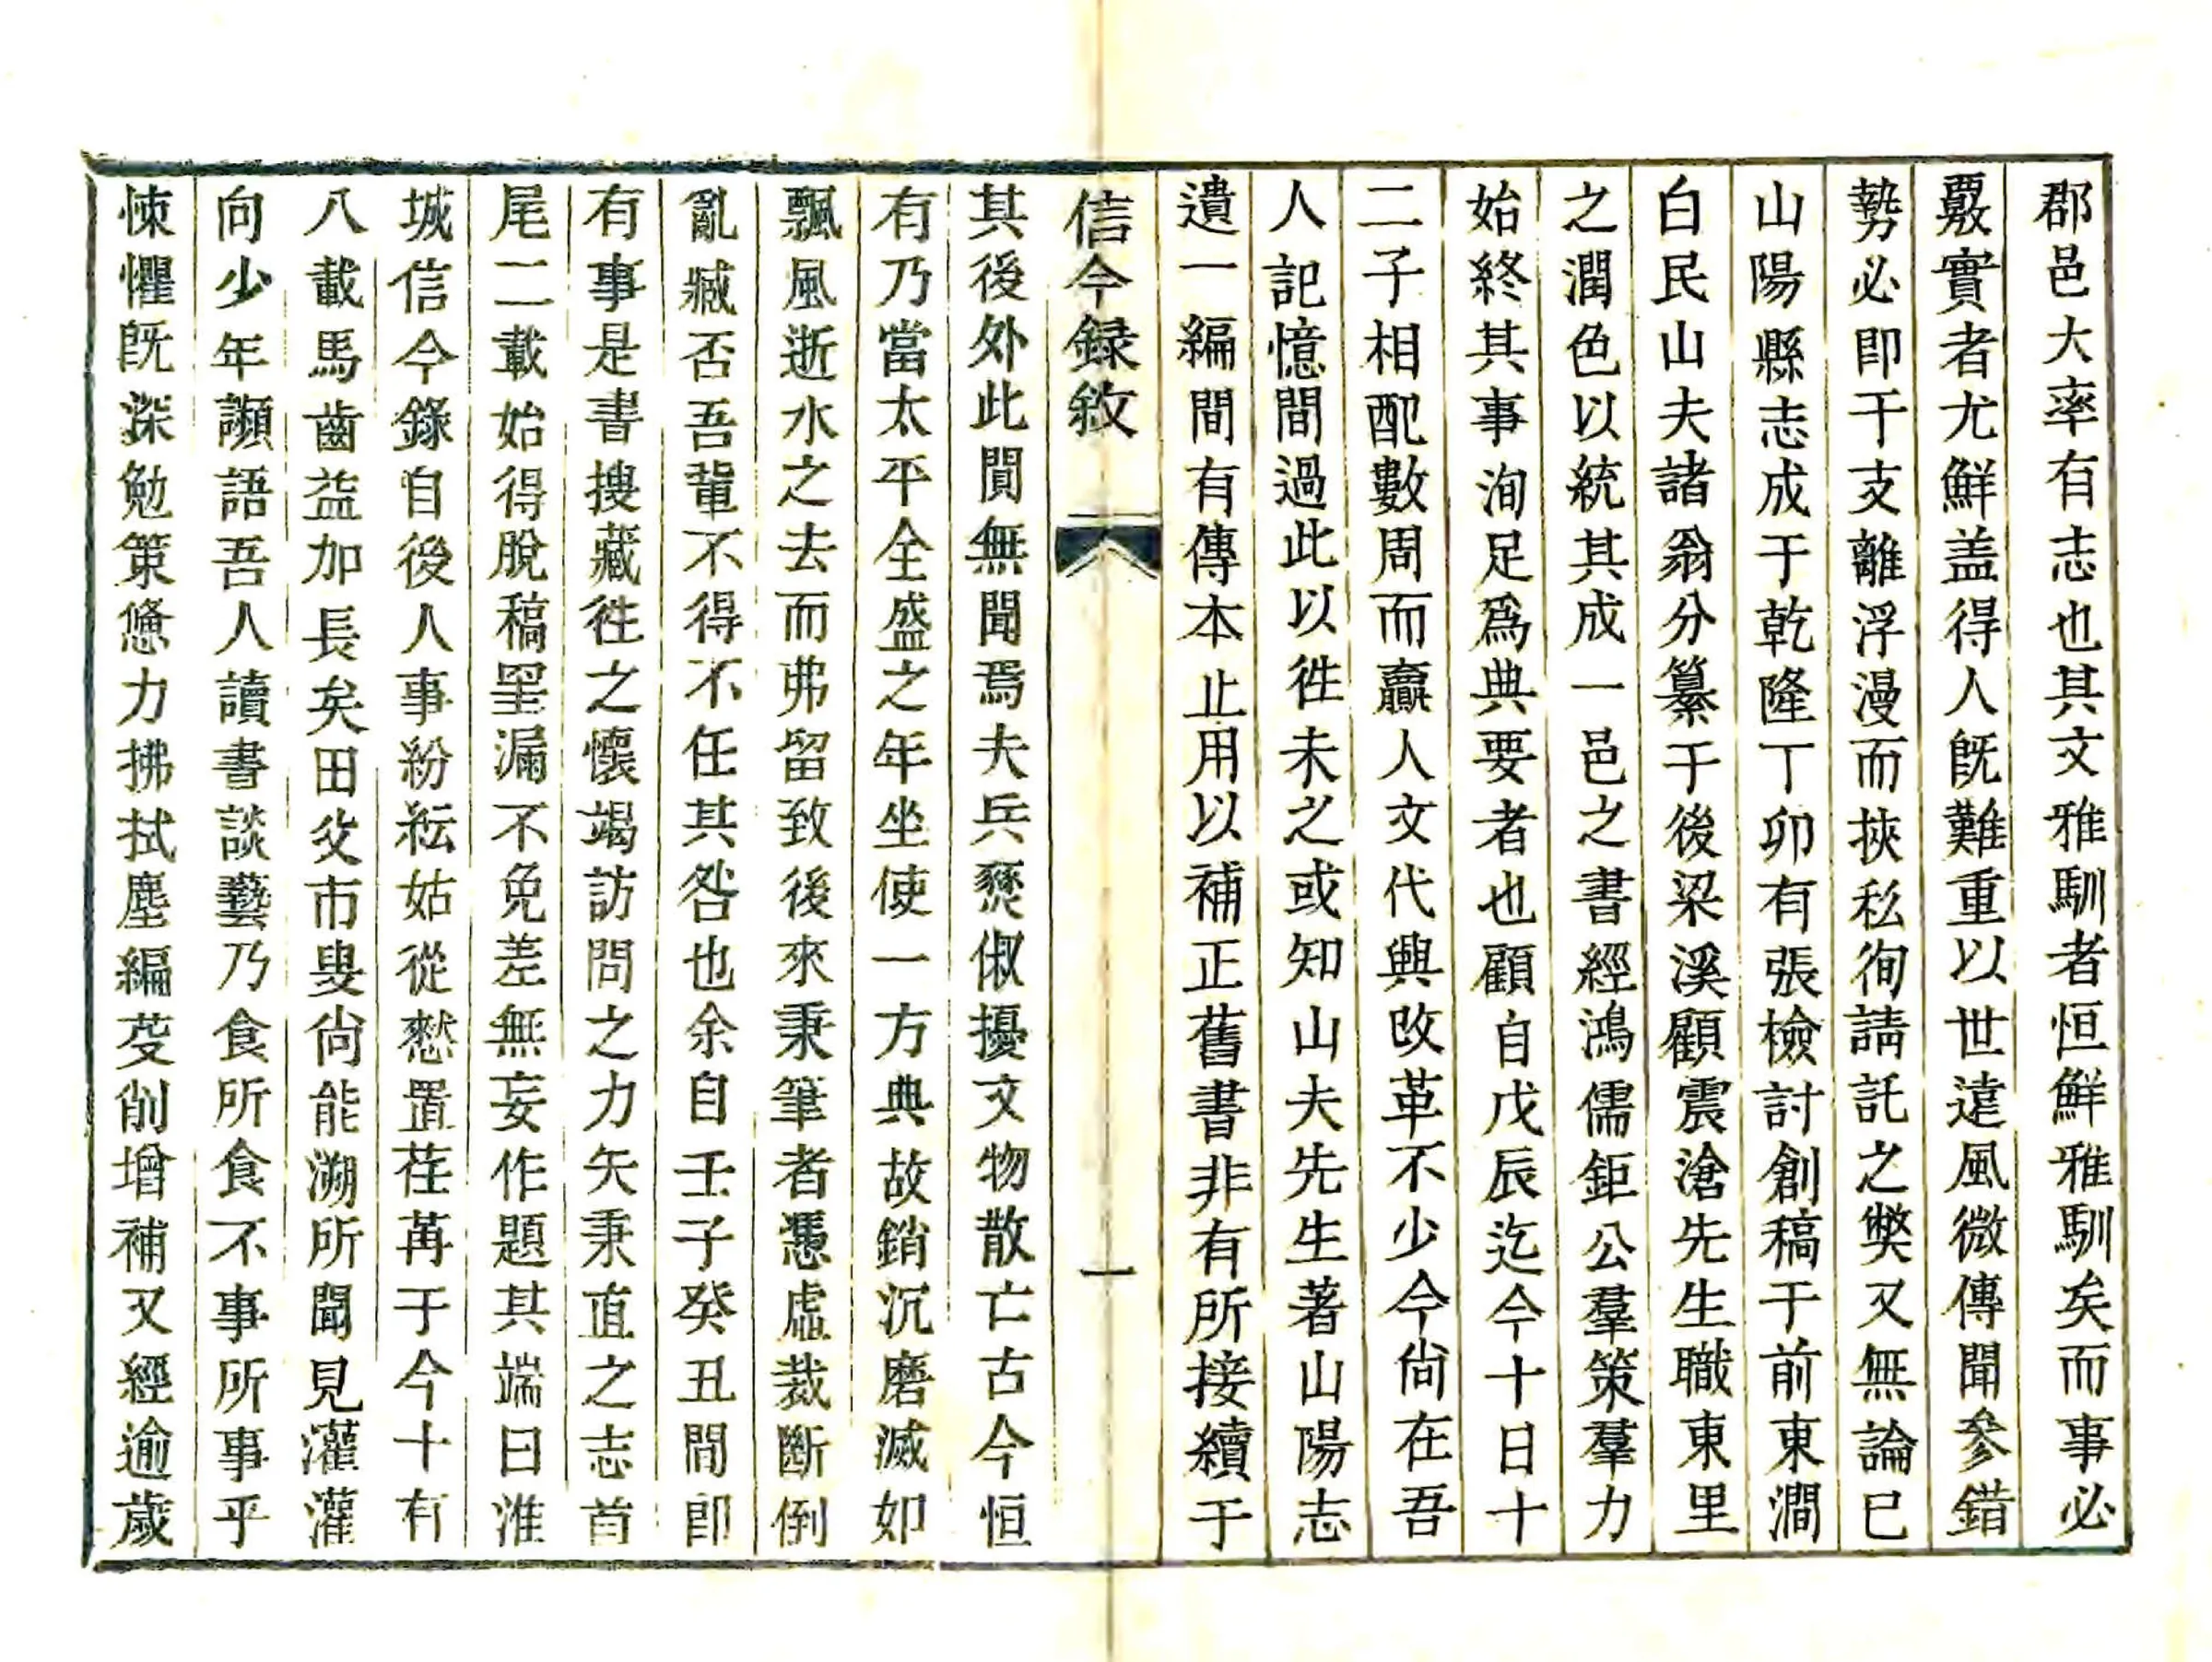 郡邑大率有志也其文雅馴者恒鮮雅馴矣而事必
覈實者尤鮮盖得人旣難重以世遠風微傳聞參錯
勢必即干支離浮漫而挾私徇請託之獘又無論已
山陽縣志成于乾隆丁卯有張檢討創稿于前東澗
白民山夫諸翁分纂于後梁溪顧震滄先生職東里
之潤色以統其成一邑之書經鴻儒鉅公羣策羣力
始終其事洵足爲典要者也顧自戊辰迄今十日十
二子相配數周而贏人文代興改革不少今尚在吾
人記憶間過此以徃未之或知山夫先生著山陽志
遺一編間有傳本止用以補正舊書非有所接續于
信今録敘 一
其後外此閴無聞焉夫兵燹俶擾文物散亡古今恒
有乃當太平全盛之年坐使一方典故銷沉磨滅如
飄風逝水之去而弗留致後來秉筆者憑虛裁斷倒
亂臧否吾輩不得不任其咎也余自壬子癸丑間即
有事是書搜藏徃之懷竭訪問之力矢秉直之志首
尾二載始得脫稿罣漏不免差無妄作題其端曰淮
城信今錄自後人事紛紜姑從憖置荏苒于今十有
八載馬齒益加長矣田父市叟尚能溯所聞見灌灌
向少年讕語吾人讀書談藝乃食所食不事所事乎
悚懼旣深勉策憊力拂拭塵編芟削增補又經逾歲